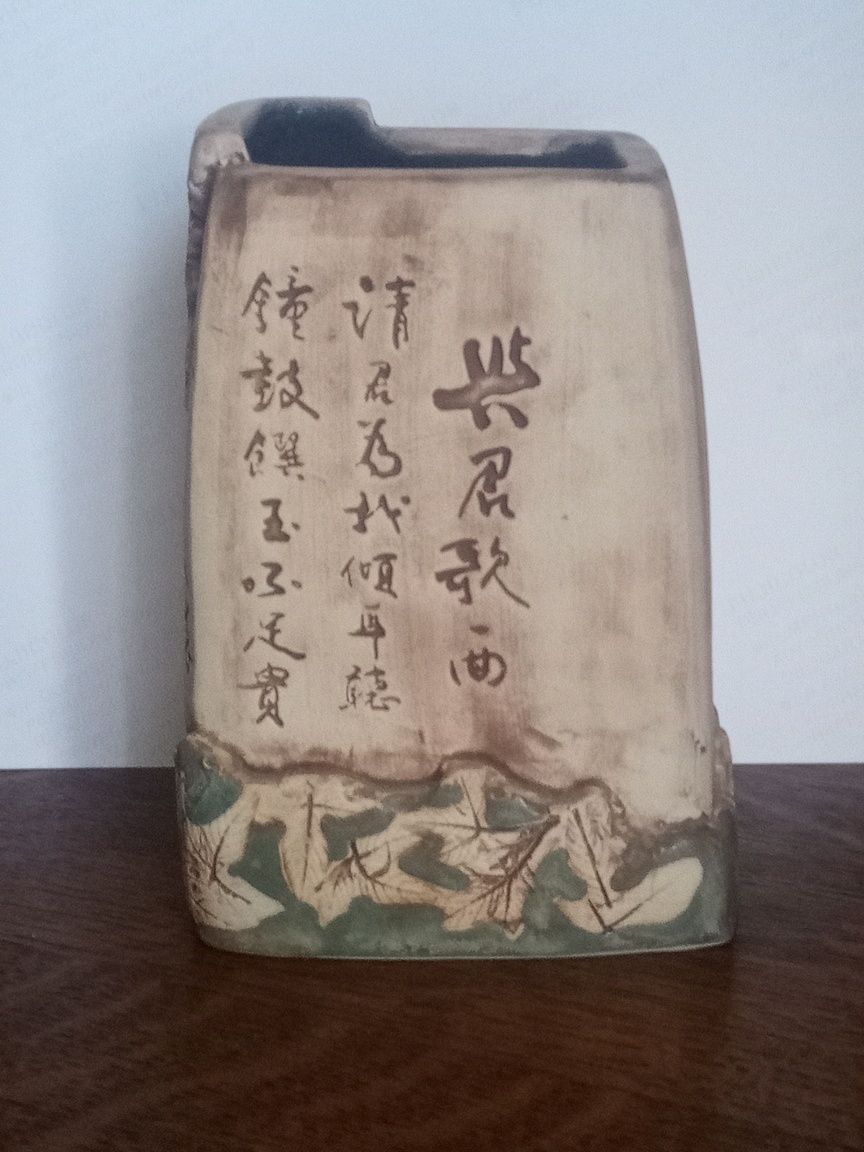 與君歌一曲
請君為我傾耳聽
鐘鼓饌玉不足貴